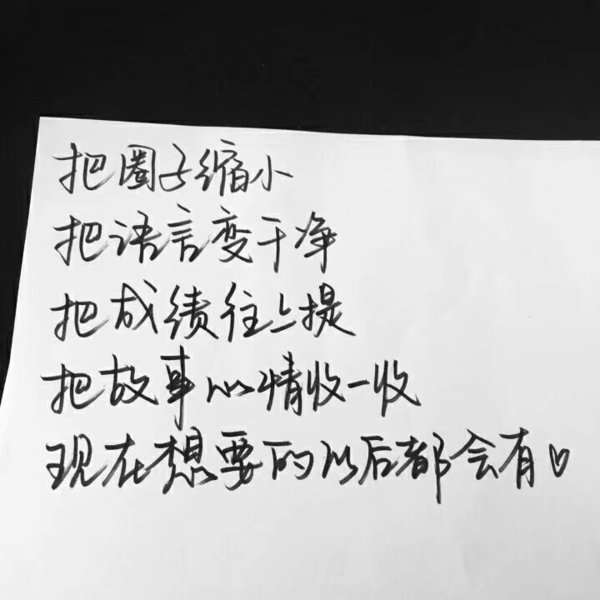 把圈子缩小
把语言变干净
把成绩往上提
把故事心情收一收
现在想要的以后都会有♡